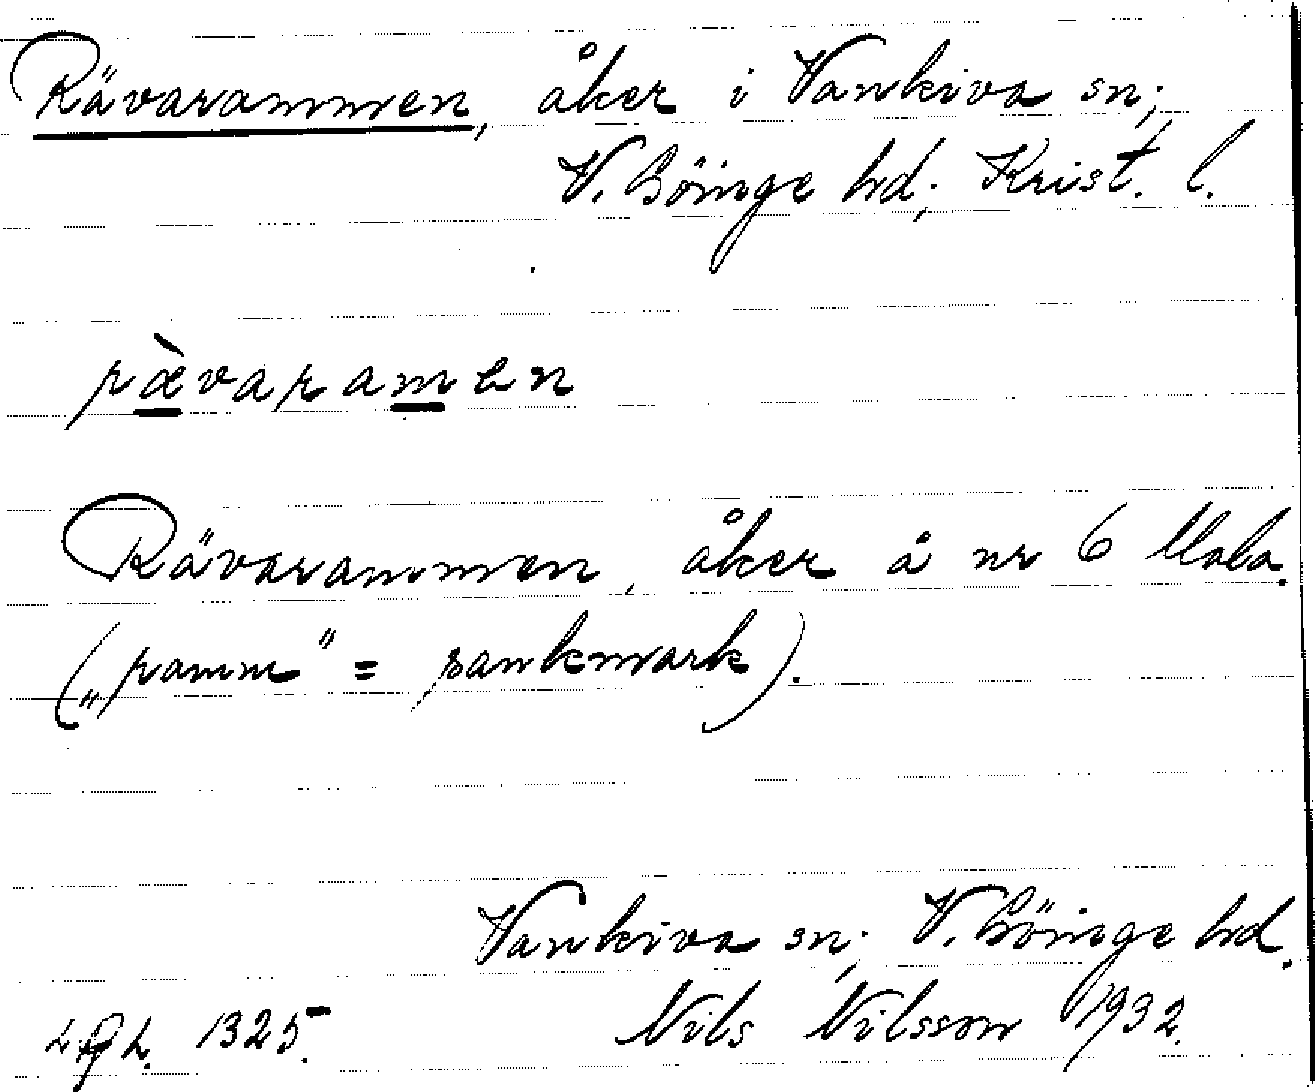 Rävarammen, åker i Vankiva sn;
V. Göinge hd; Krist. l.
ràvaramen
Rävarammen, åker å nr 6 Mala.
(„ramm" = sankmark).
Vankiva sn; V. Göinge hd.
1325. Nils Nilsson 1932.